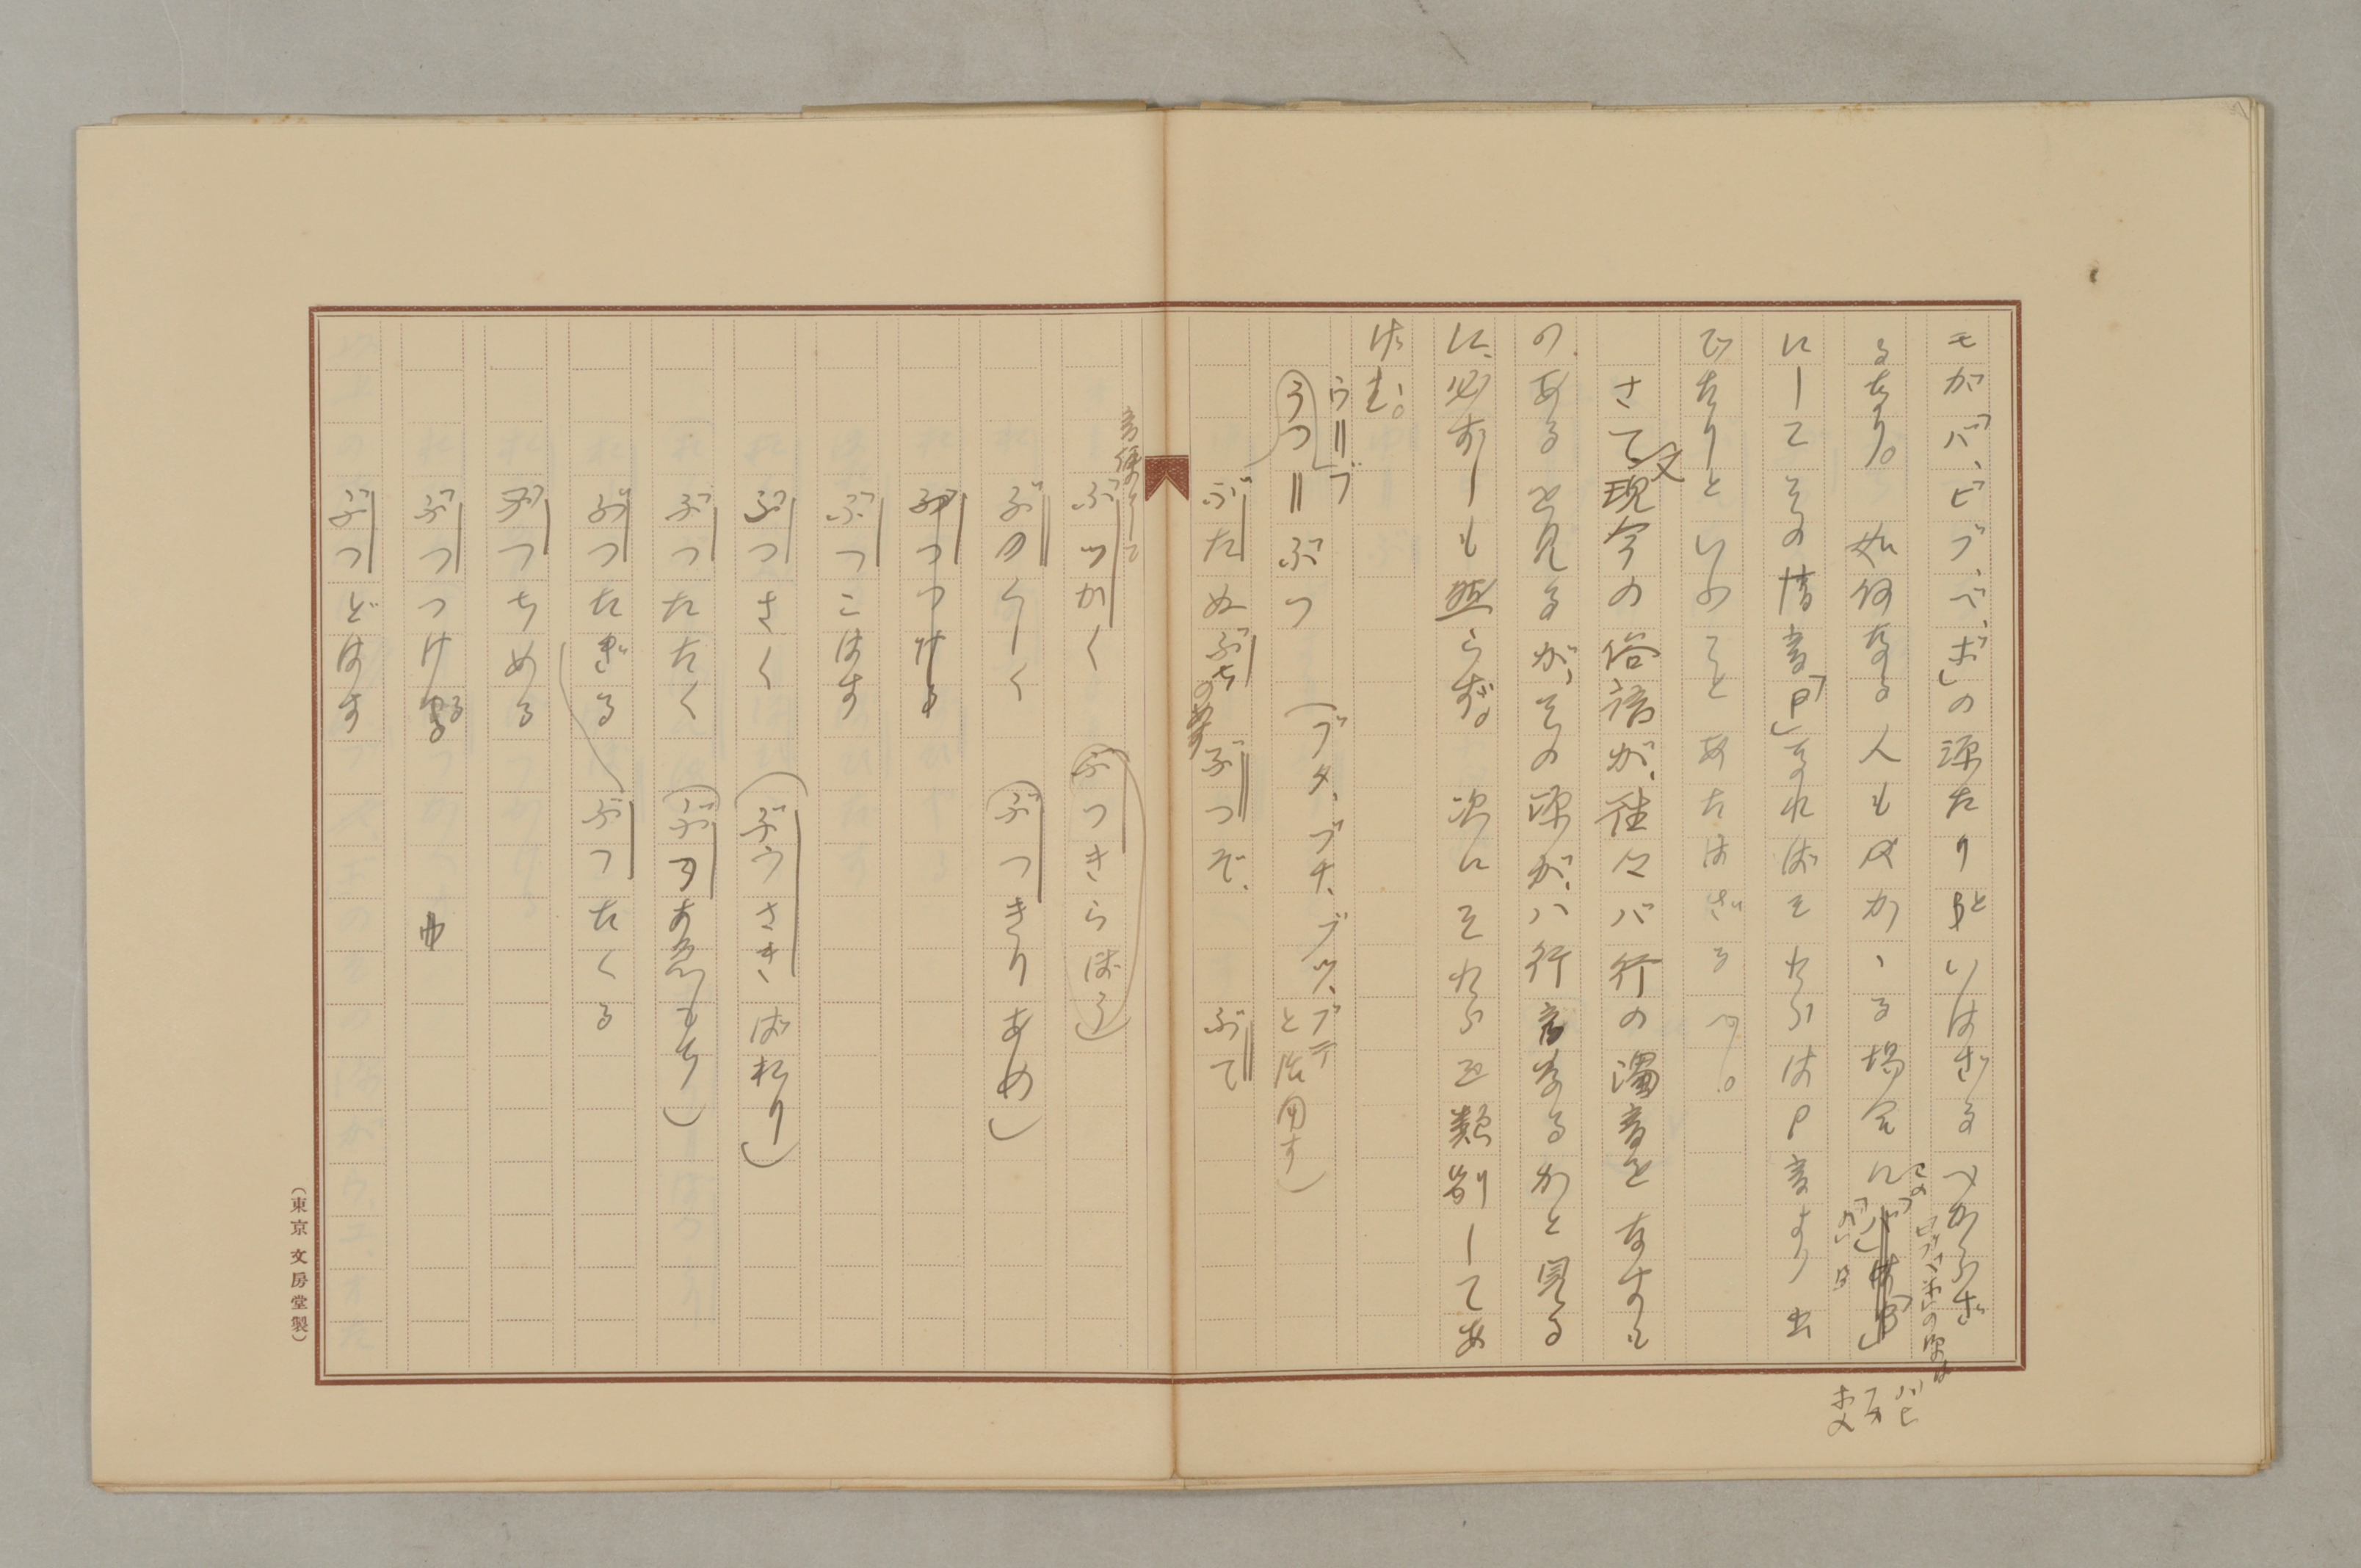 モが「バ、ビ、ブ、ベ、ボ」の源たりといはざるべからざ
るなり。如何なる人もかゝる場合に
この「ビブベボ」の源は
にしてその清音「P」なればそれらはP音より出
でたりといふことあたはざるべし。
さて又現今の俗語が、往々バ行の濁音をなすも
のあるを見るが、その源が、ハ行音なるかと見る
に、必ずしも然らず。次にそれらを類別してあ
げむ。
ウ=ブ
うつ=ぶつ
(ブタ、ブチ、ブツ、ブテ
と活用す)
ぶたぬ ぶち ぶつぞ、 ぶて
音便にして
ぶツかく (ぶつきらぼう)
ぶつきりあめ)
ぶつつける
ぶつこはす
ぶつさく (ぶうさきばおり)
ぶつたたく
ぶつたぎる ぶつたくる
ぶつちめる
ぶつつける
ぶつどはす
(東京 文房堂製)